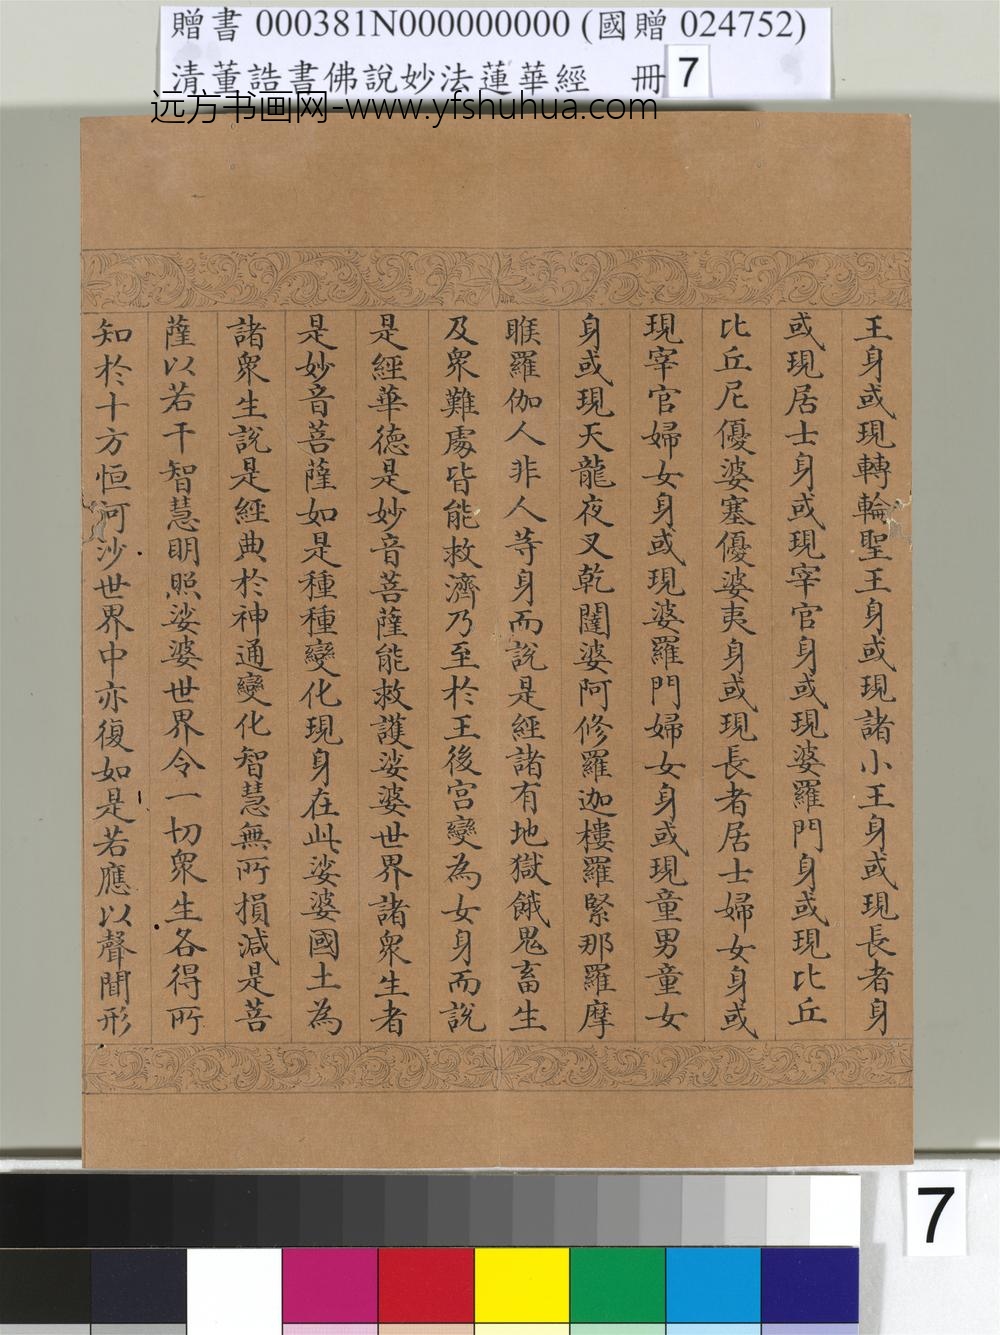 贈書 000381N000000000 (國贈 024752)
清董誥書佛說妙法蓮華經 冊 7
远方书画网-www.yfshuhua.com
王身或現轉輪聖王身或現諸小王身或現長者身
或現居士身或現宰官身或現婆羅門身或現比丘
比丘尼優婆塞優婆夷身或現長者居士婦女身或
現宰官婦女身或現婆羅門婦女身或現童男童女
身或現天龍夜叉乾闥婆阿修羅迦樓羅緊那羅摩
睺羅伽人非人等身而說是經諸有地獄餓鬼畜生
及衆難處皆能救濟乃至於王後宮變為女身而說
是經華德是妙音菩薩能救護娑婆世界諸衆生者
是妙音菩薩如是種種變化現身在此娑婆國土為
諸衆生說是經典於神通變化智慧無所損減是菩
薩以若干智慧明照娑婆世界令一切衆生各得所
知於十方恒河沙世界中亦復如是若應以聲聞形
7